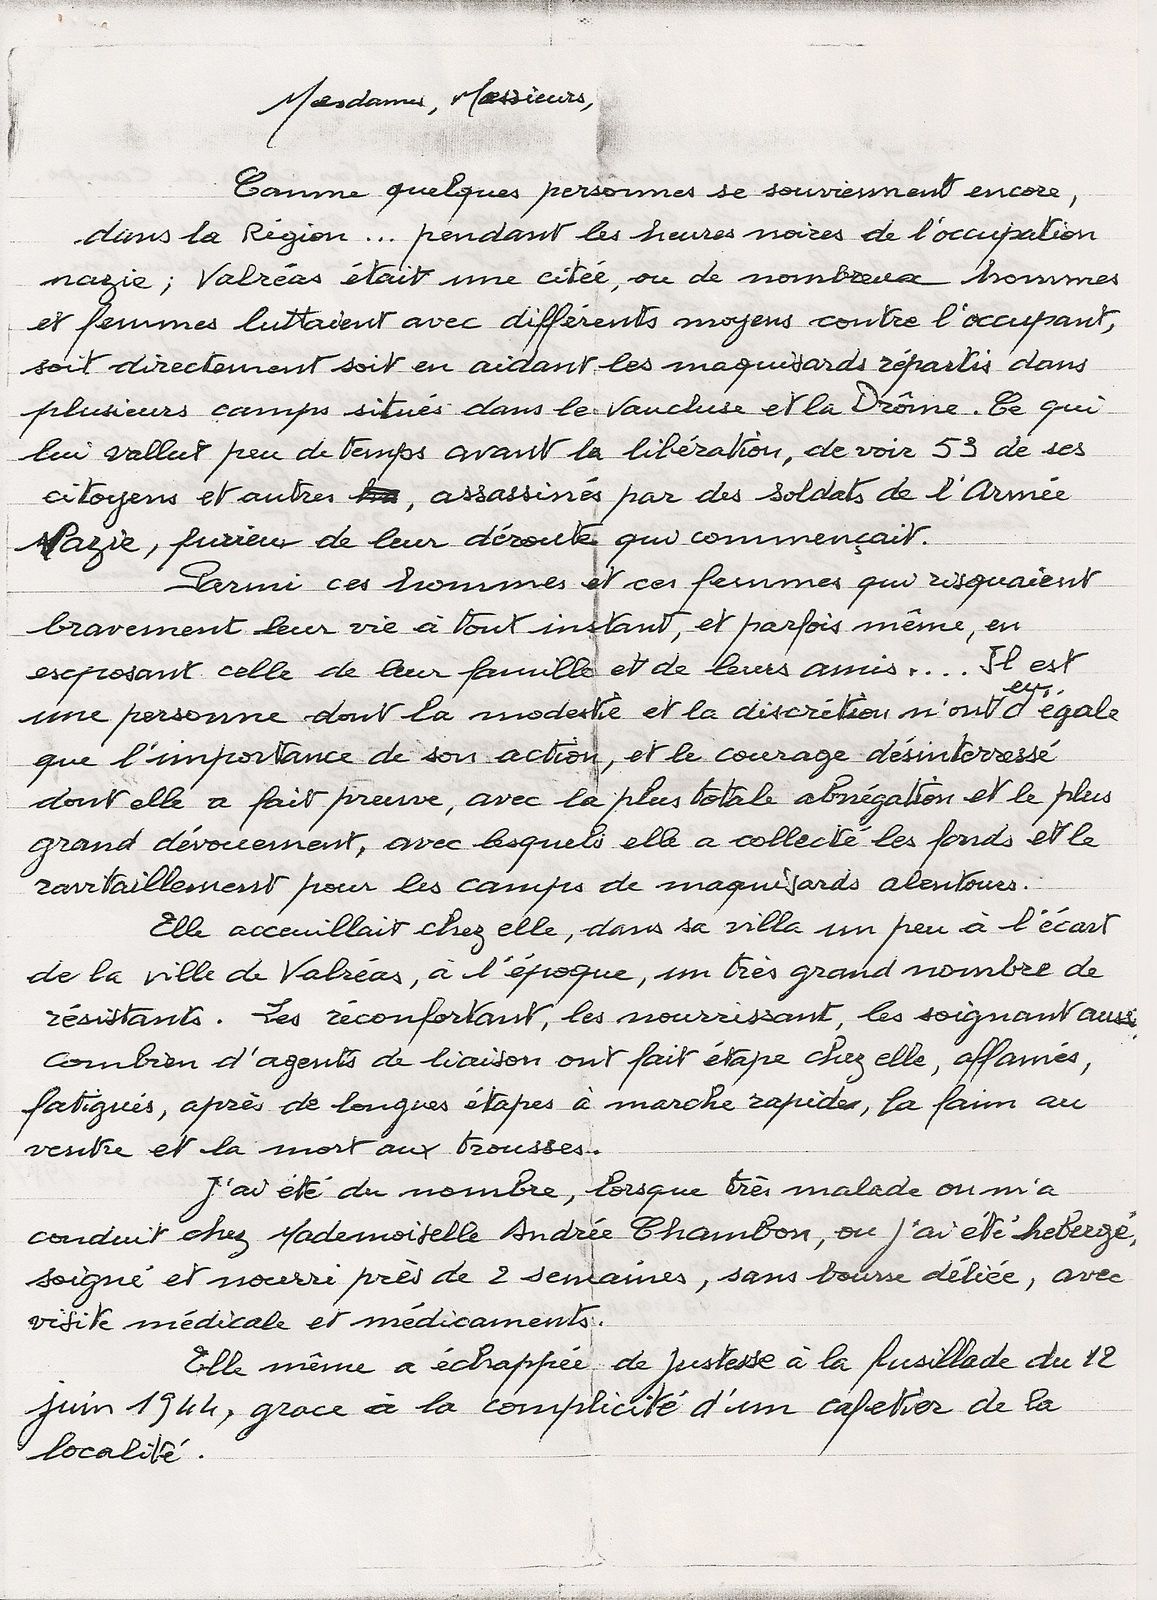 Mesdames, Messieurs,
Comme quelques personnes se souviennent encore,
dans la Région ... pendant les heures noires de l'occupation
nazie ; Valréas était une citée, ou de nombreux hommes
et femmes luttaient avec différents moyens contre l'occupant,
soit directement soit en aidant les maquisards répartis dans
plusieurs camps situés dans le Vaucluse et la Drôme. Ce qui
lui vallut peu de temps avant la libération, de voir 53 de ses
citoyens et autres , assassinés par des soldats de l'Armée
Nazie, furieux de leur déroute qui commençait.
Parmi ces hommes et ces femmes qui risquaient
bravement leur vie à tout instant, et parfois même, en
exposant celle de leur famille et de leurs amis .... Il est
une personne dont la modestie et la discrétion n'ont eu d'égale
que l'importance de son action, et le courage désinterressé
dont elle a fait preuve, avec la plus totale abnégation et le plus
grand dévouement, avec lesquels elle a collecté les fonds et le
ravitaillement pour les camps de maquisards alentours.
Elle acceuillait chez elle, dans sa villa un peu à l'écart
de la ville de Valréas, à l'époque, un très grand nombre de
résistants. Les réconfortant, les nourrissant, les soignant aussi
combien d'agents de liaison ont fait étape chez elle, affamés,
fatigués, après de longues étapes à marche rapide, la faim au
ventre et la mort aux trousses.
J'ai été du nombre, lorsque très malade on m'a
conduit chez Mademoiselle Andrée Chambon, ou j'ai été hebergé,
soigné et nourri près de 2 semaines, sans bourse déliée, avec
visite médicale et médicaments.
Elle même a échappée de justesse à la fusillade du 12
juin 1944, grace à la complicité d'un cafetier de la
localité.